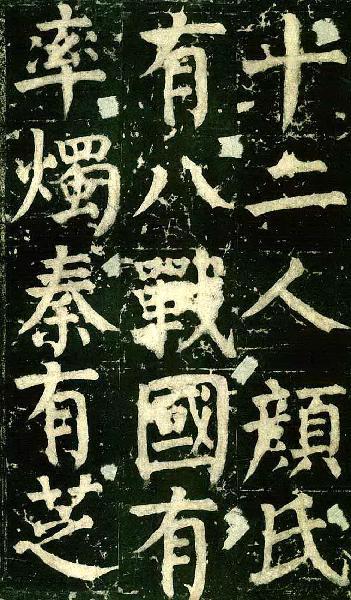 十二人顔氏
有八戰國有
率燭秦有芝